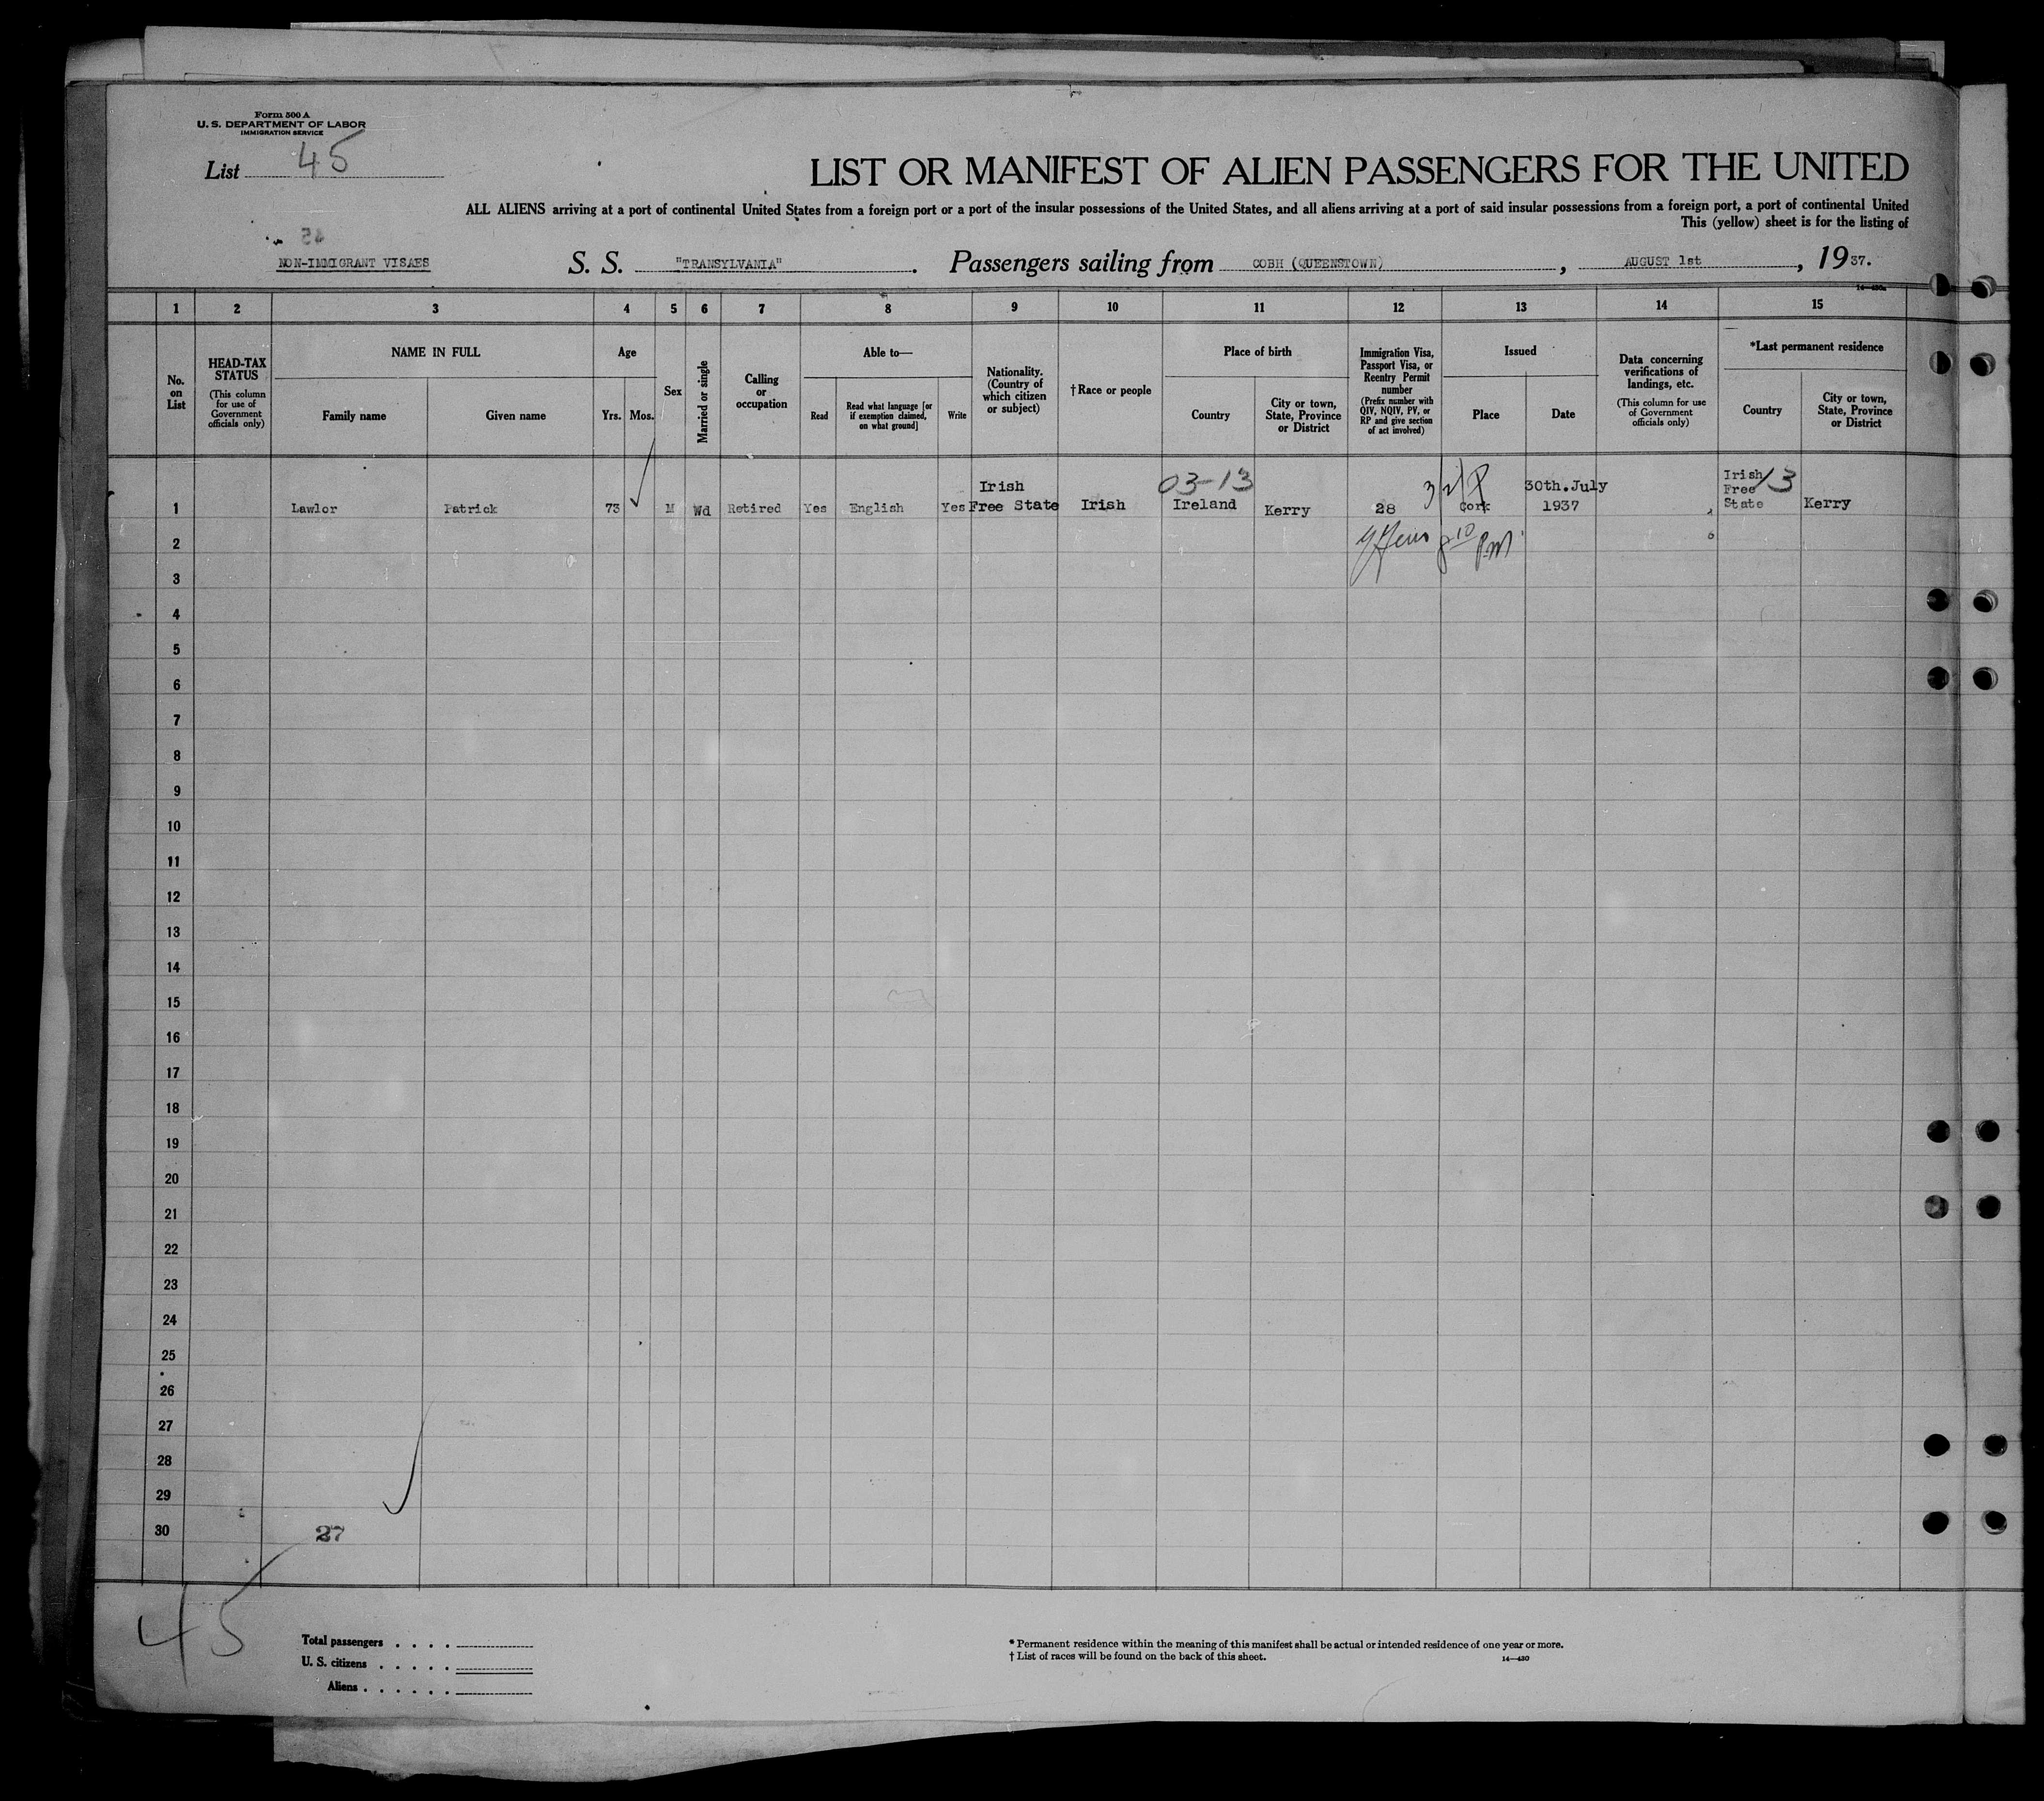 Form 500 A
U. S. DEPARTMENT OF LABOR
IMMIGRATION SERVICE
List 45
LIST OR MANIFEST OF ALIEN PASSENGERS FOR THE UNITED
ALL ALIENS arriving at a port of continental United States from a foreign port or a port of the insular possessions of the United States, and all aliens arriving at a port of said insular possessions from a foreign port, a port of continental United
This (yellow) sheet is for the listing of
45
NON-IMMIGRANT VISAES
S. S. "TRANSYLVANIA". Passengers sailing from COBH (QUEENSTOWN), AUGUST 1st, 1937.
14—430a
1 2 3 4 5 6 7 8 9 10 11 12 13 14 15
No. on List
HEAD-TAX STATUS
(This column for use of Government officials only)
NAME IN FULL
Family name
Given name
Age
Yrs.
Mos.
Sex
Married or single
Calling or occupation
Able to—
Read
Read what language [or if exemption claimed, on what ground]
Write
Nationality. (Country of which citizen or subject)
†Race or people
Place of birth
Country
City or town, State, Province or District
Immigration Visa, Passport Visa, or Reentry Permit number
(Prefix number with QIV, NQIV, PV, or RP and give section of act involved)
Issued
Place
Date
Data concerning verifications of landings, etc.
(This column for use of Government officials only)
*Last permanent residence
Country
City or town, State, Province or District
03-13
1 Lawlor Patrick 73 M Wd Retired Yes English Yes Irish Free State Irish Ireland Kerry 28 Cork 30th.July 1937 Irish Free State 13 Kerry
2 8 10 P.M.
3
4
5
6
7
8
9
10
11
12
13
14
15
16
17
18
19
20
21
22
23
24
25
26
27
28
29
30 27
45
Total passengers . . . .
U. S. citizens . . . . .
Aliens . . . . . .
* Permanent residence within the meaning of this manifest shall be actual or intended residence of one year or more.
† List of races will be found on the back of this sheet.
14—430